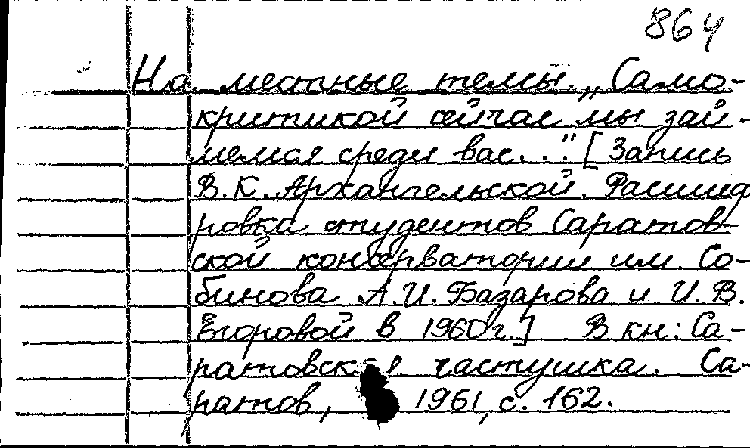 864
На местные темы. „Само-
критикой сейчас мы зай-
мемся среди вас..." [Запись
В.К. Архангельской. Расшиф
ровка студентов Саратов-
ской консерватории им. Со-
бинова А.И. Базарова и И.В.
Егоровой в 1960г.] В кн: Са-
ратовская частушка. Са-
ратов, 1961, с. 162.